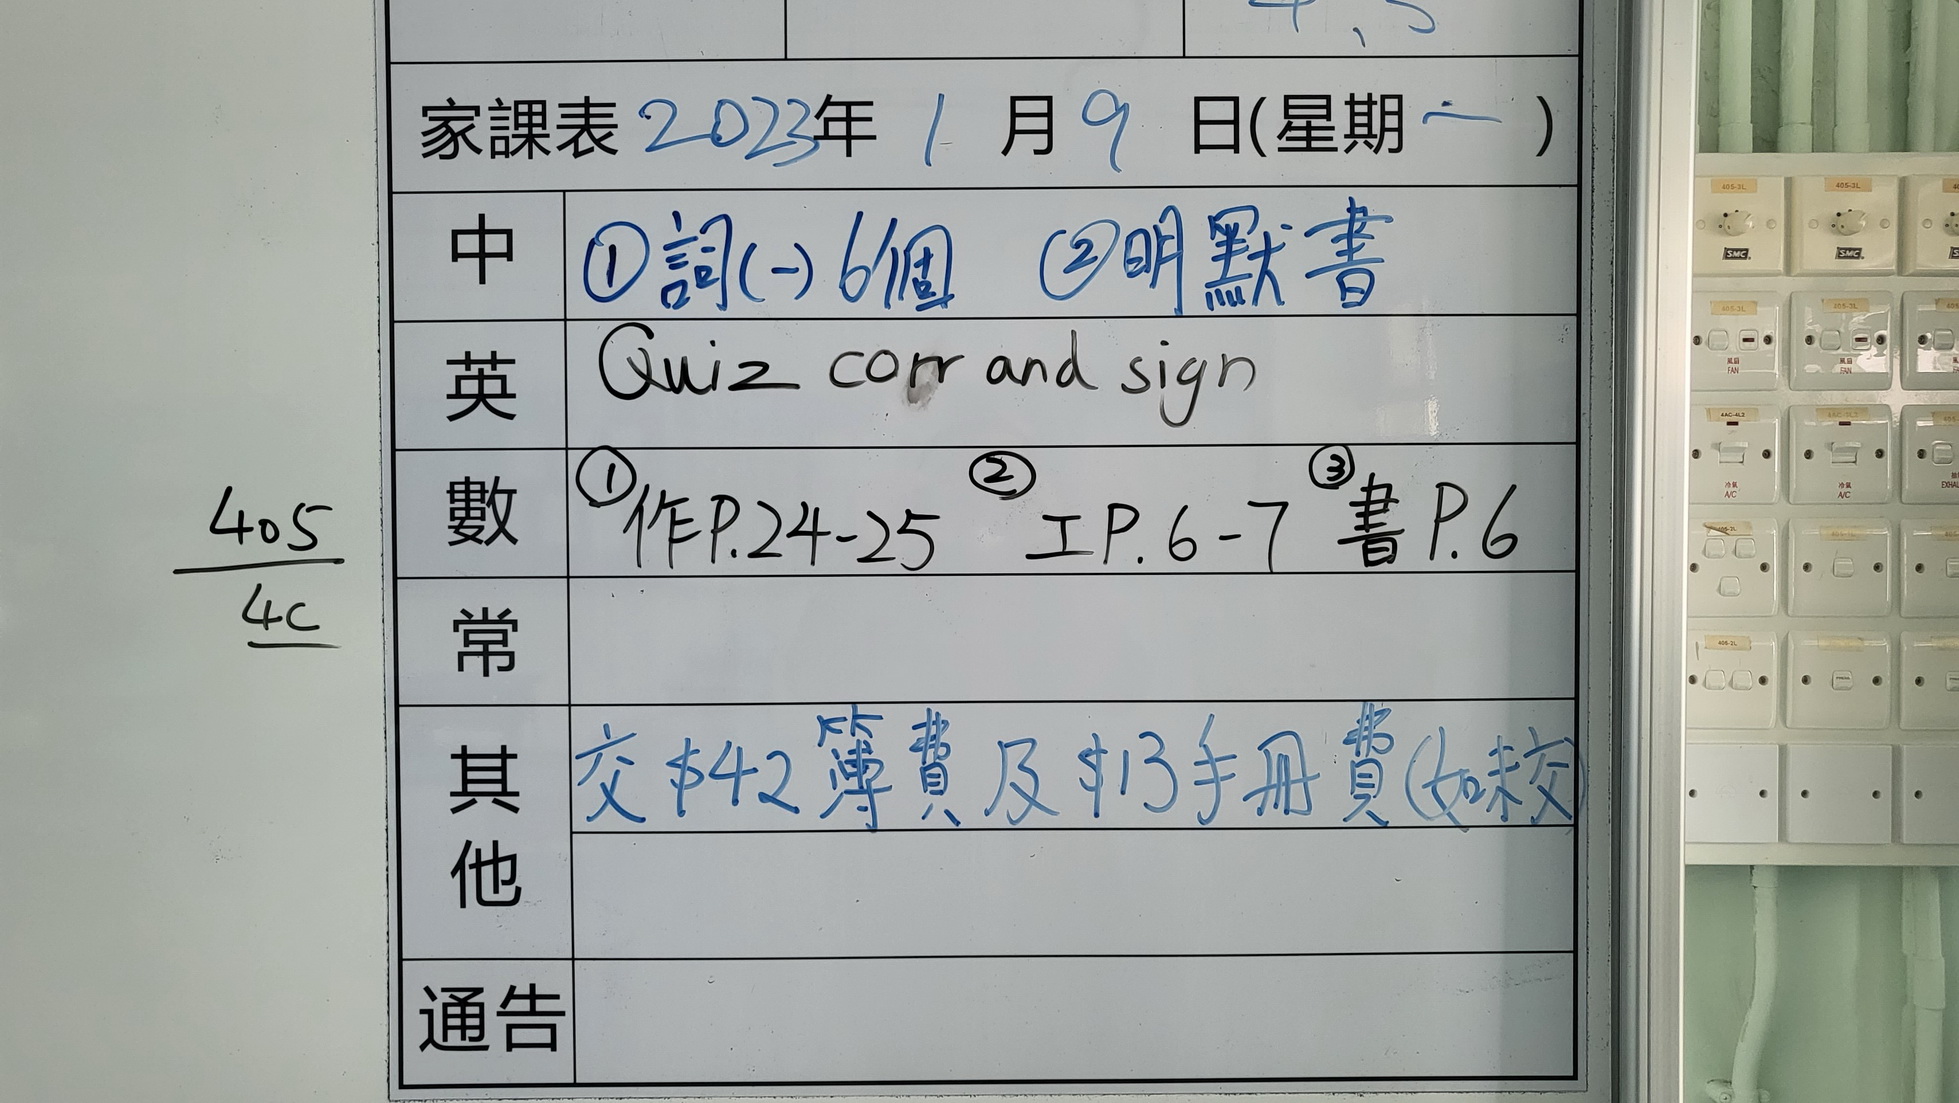 4、5
家課表 2023年 1 月 9 日(星期一)
中 ①詞(一)6個 ②明默書
英 Quiz corr and sign
數 ①作P.24-25 ②工P.6-7 ③書P.6
405
4C
常
其他 交$42簿費及$13手冊費(如未交)
通告
405-3L
405-3L
SMC
SMC
405-3L
405-3L
風扇
FAN
風扇
FAN
4AC-4L2
冷氣
A/C
冷氣
A/C